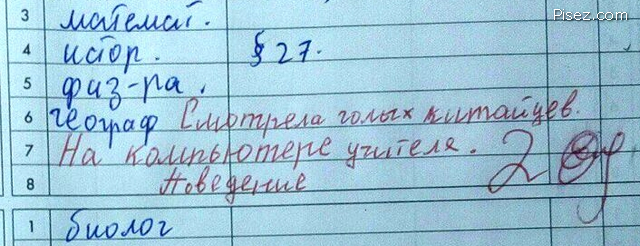 Pisez.com
3 математ.
4 истор. § 27.
5 физ-ра.
6 географ Смотрела голых китайцев.
7 На компьютере учителя. 2
8 Поведение
1 биолог